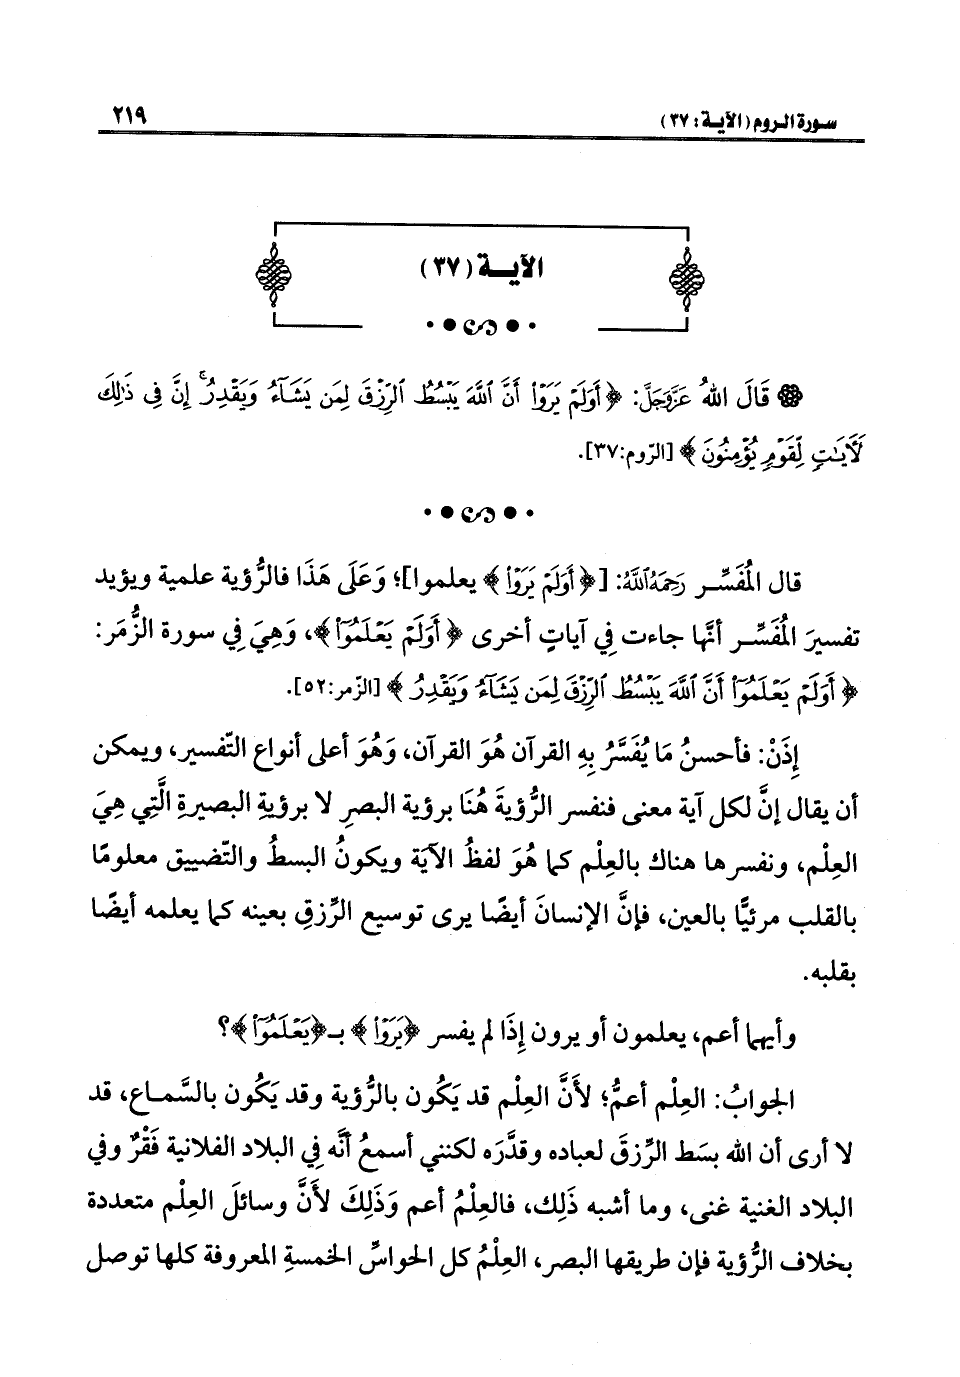 سورة الروم (الآية: ٣٧)
٢١٩
الآية (٣٧)
قَالَ اللهُ عَزَّوَجَلَّ: ﴿أَوَلَمْ يَرَوْا۟ أَنَّ ٱللَّهَ يَبْسُطُ ٱلرِّزْقَ لِمَن يَشَآءُ وَيَقْدِرُ ۚ إِنَّ فِى ذَٰلِكَ
لَـَٔايَـٰتٍ لِّقَوْمٍ يُؤْمِنُونَ﴾ [الرّوم:٣٧].
قال المُفَسِّر رَحِمَهُ ٱللَّهُ: [﴿أَوَلَمْ يَرَوْا۟﴾ يعلموا]؛ وَعَلَى هَذَا فالرُّؤية علمية ويؤيد
تفسيرَ المُفَسِّر أنَّها جاءت فِي آياتٍ أخرى ﴿أَوَلَمْ يَعْلَمُوٓا۟﴾، وَهِيَ فِي سورة الزُّمَر:
﴿أَوَلَمْ يَعْلَمُوٓا۟ أَنَّ ٱللَّهَ يَبْسُطُ ٱلرِّزْقَ لِمَن يَشَآءُ وَيَقْدِرُ﴾ [الزّمر:٥٢].
إِذَنْ: فأحسنُ مَا يُفَسَّرُ بِهِ القرآن هُوَ القرآن، وَهُوَ أعلى أنواع التّفسير، ويمكن
أن يقال إنَّ لكل آية معنى فنفسر الرُّؤيةَ هُنَا برؤية البصرِ لا برؤيةِ البصيرةِ الَّتِي هِيَ
العِلْم، ونفسرها هناك بالعِلْم كما هُوَ لفظُ الآيَة ويكونُ البسطُ والتّضييق معلومًا
بالقلب مرئيًّا بالعين، فإنَّ الإنسانَ أيضًا يرى توسيع الرِّزقِ بعينه كما يعلمه أيضًا
بقلبه.
وأيهما أعم، يعلمون أو يرون إِذَا لم يفسر ﴿يَرَوْا۟﴾ بـ﴿يَعْلَمُوٓا۟﴾؟
الجوابُ: العِلْم أعمُّ؛ لأَنَّ العِلْم قد يَكُون بالرُّؤية وقد يَكُون بالسَّماع، قد
لا أرى أن الله بسَط الرِّزقَ لعباده وقدَّرَه لكنني أسمعُ أنَّه فِي البلاد الفلانية فَقْرٌ وفي
البلاد الغنية غنى، وما أشبه ذَلِك، فالعِلْمُ أعم وَذَلِكَ لأَنَّ وسائلَ العِلْم متعددة
بخلاف الرُّؤية فإن طريقها البصر، العِلْمُ كل الحواسِّ الخمسةِ المعروفة كلها توصل